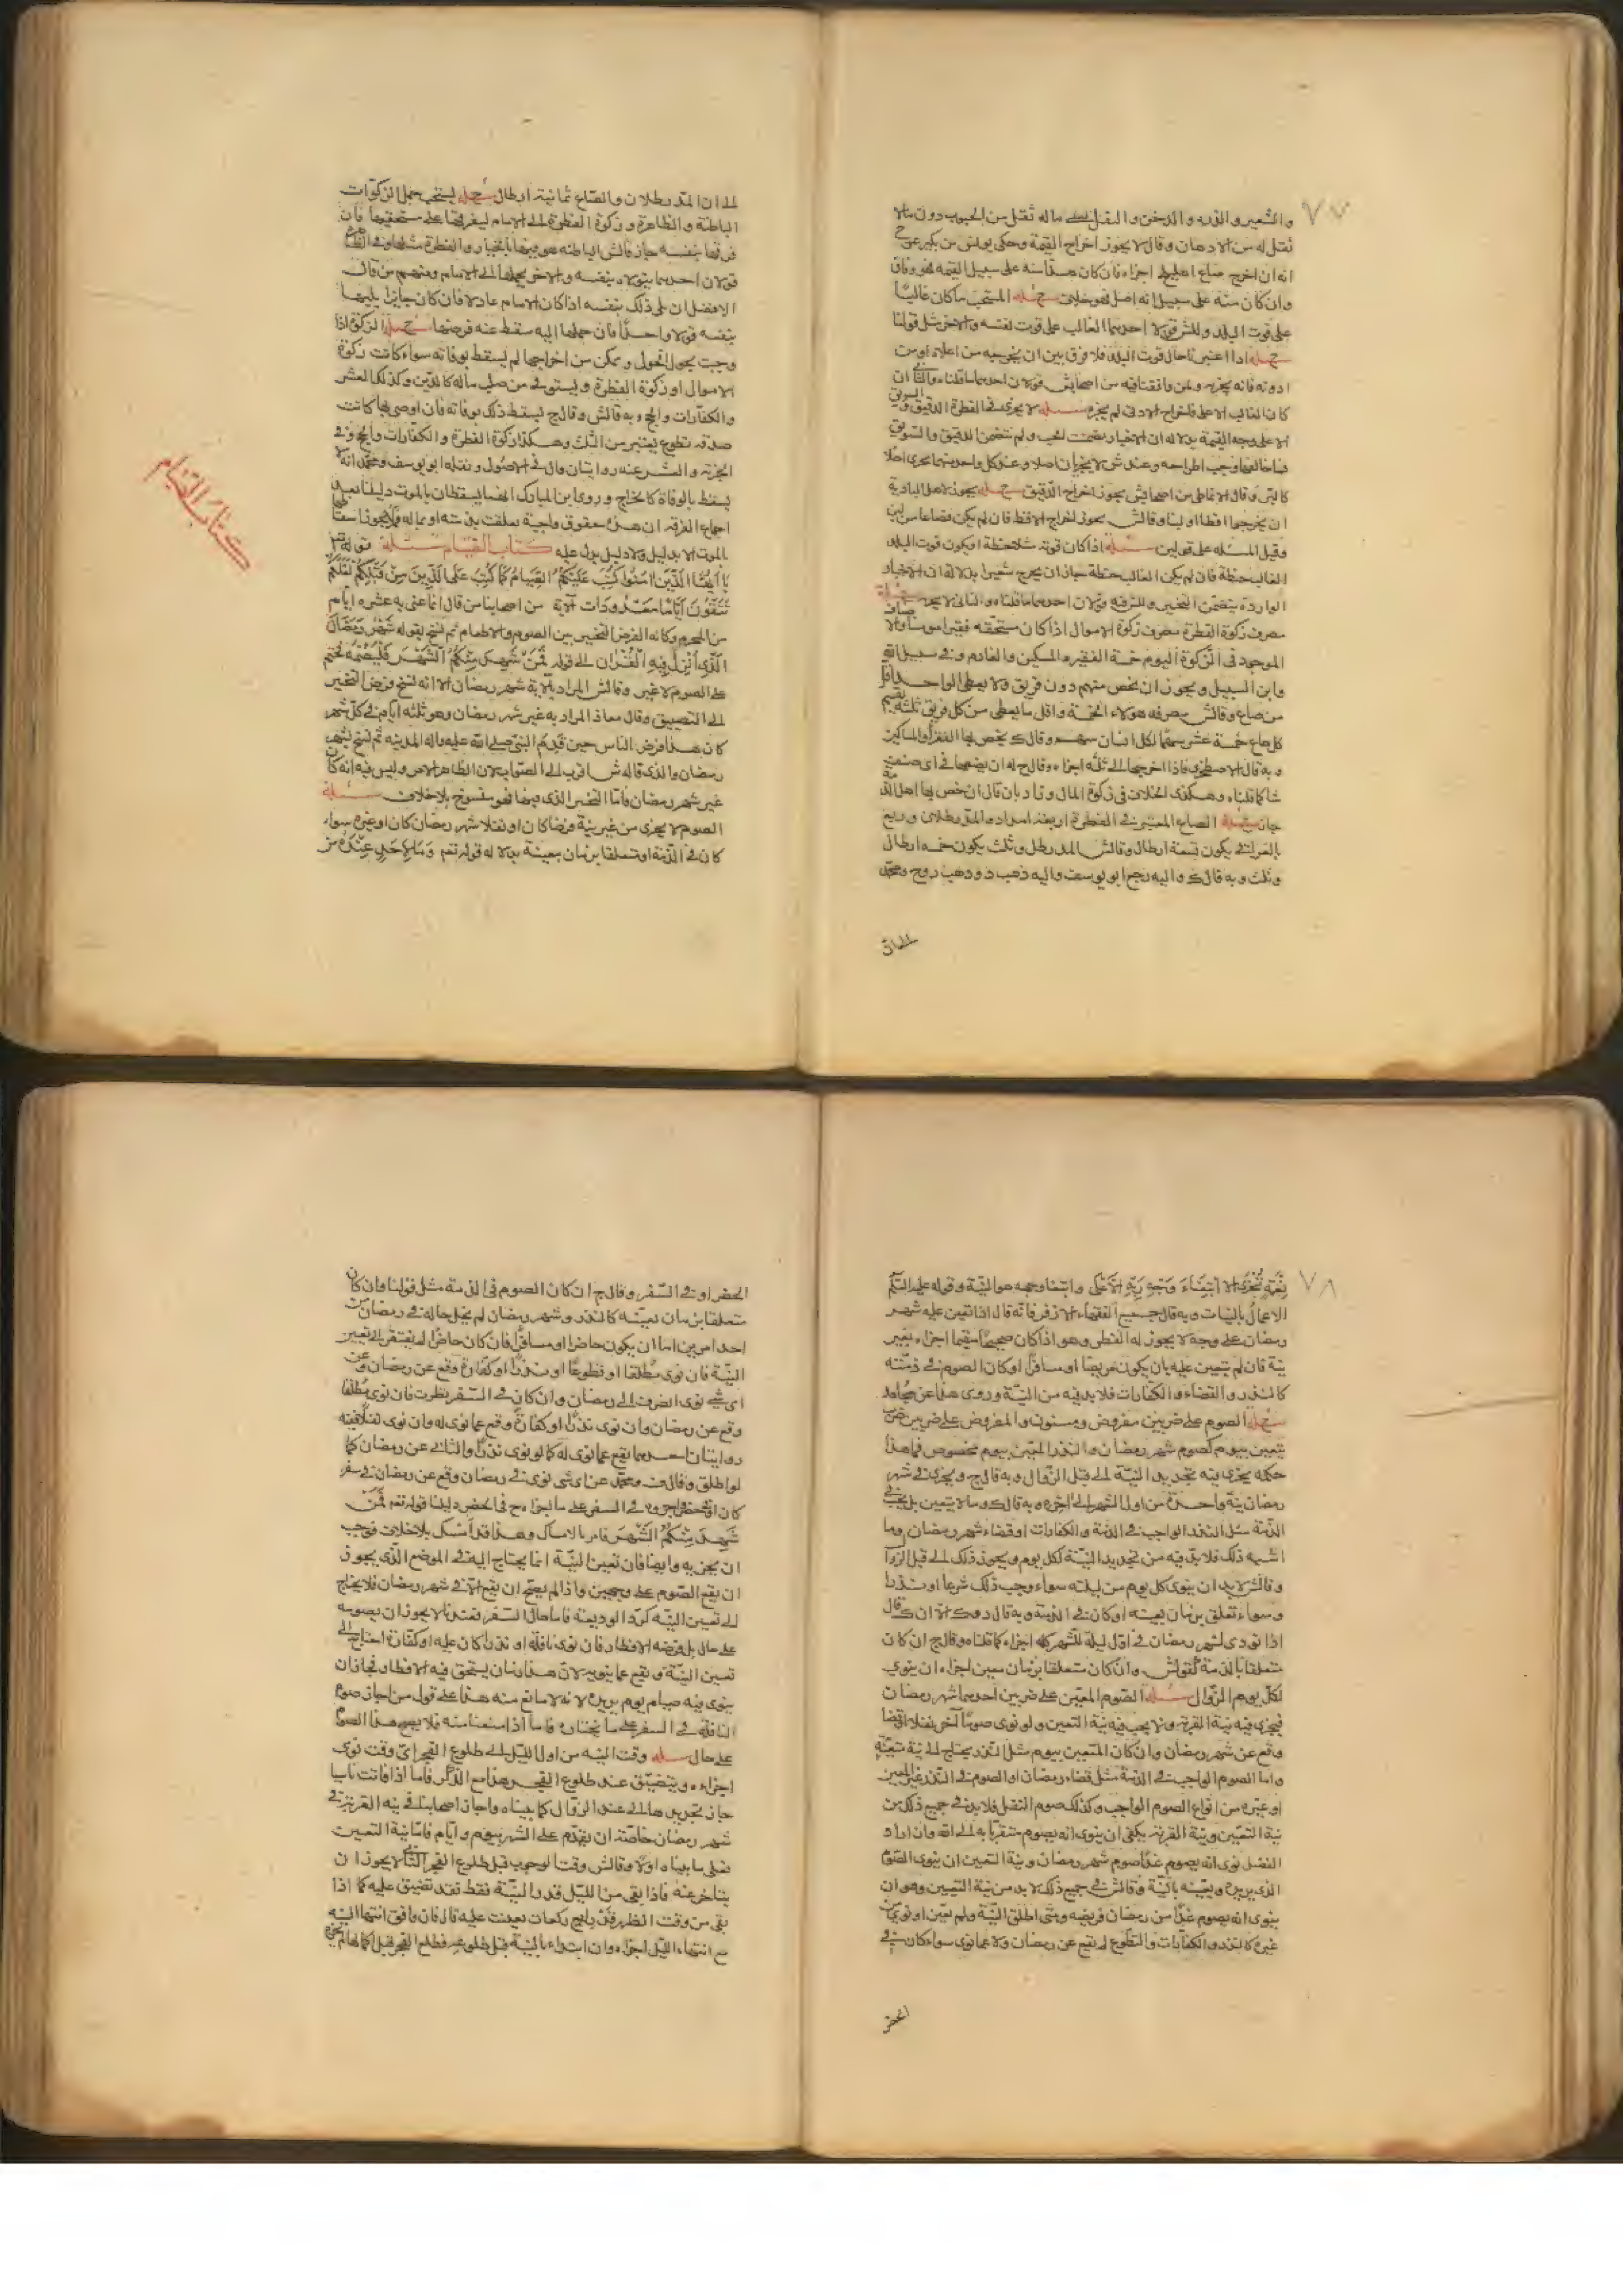 ٧٧
والشعير والذرة والدخن والبقل كل ماله ثقل من الحبوب دون مالا
ثقل له من الادهان وقال لا يجوز اخراج القيمة وحكى بويلس بن بكير عن ح
انه ان اخرج صاع اجزاه فان كان هذا منه على سبيل القيمة فهو وفاق
وان كان منه على سبيل انه اصل فهو خلاف مسئله المستحب ما كان غالبا
على قوت البلد وللش قولان احدهما الغالب على قوت نفسه والاخر مثل قولنا
مسئله اذا اعتبرنا حال قوت البلد فلا فرق بين ان يخرجه من اعلاه او من
ادونه فانه يجزيه ولمن وافقنا فيه من اصحاب ش قولان احدهما ما قلناه والثاني ان
كان الغالب الاعلى فاخرج الادنى لم يجزه مسئله لا يجزى في الفطرة الدقيق والسويق
الا على وجه القيمة بدلالة ان الاخبار تضمنت الحب ولم تتضمن الدقيق والسويق
كالبر وقال الانماطي من اصحاب ش يجوز اخراج الدقيق مسئله يجوز لاهل البادية
ان يخرجوا اقطا او لبنا وقال ش يجوز اخراج الاقط فان لم يكن فصاعا من لبن
وقيل المسئله على قولين مسئله اذا كان قوته حنطة ويكون قوت البلد
الغالب حنطة فان لم يكن الغالب حنطة جاز ان يخرج شعيرا بدلالة ان الاخبار
الواردة يتضمن التخيير وللش فيه قولان احدهما ما قلناه والثاني لا يجزيه مسئله
مصرف زكوة الفطرة مصرف زكوة الاموال اذا كان مستحقه فقيرا مومنا والاصناف
الموجود في الزكوة اليوم خمسة الفقير والمسكين والغارم وفي سبيل الله
وابن السبيل ويجوز ان يخص منهم دون فريق ولا يعطى الواحد اقل
من صاع وقال ش مصرفه هولاء الخمسة واقل ما يعطى من كل فريق ثلثة يقسم
كل صاع خمسة عشر سهما لكل انسان سهم وقال ك يخص بها الفقراء والمساكين
وبه قال الاصطخري فاذا اخرجها الى ثلثه اجزاه وقال ح له ان يضعها في اى صنف
شا كما قلناه وهكذى الخلاف في زكوة المال وزاد بان قال ان خص بها اهل الذمة
جاز مسئله الصاع المعتبر في الفطرة اربعة امداد والمد رطلان وربع
بالعراقي يكون تسعة ارطال وقال ش المد رطل وثلث يكون خمسة ارطال
وثلث وبه قال ك واليه رجع ابو يوسف واليه ذهب د وذهب ح ومحمد
الى ان
الى ان المد رطلان والصاع ثمانية ارطال مسئله يستحب حمل الزكوات
الباطنة والظاهرة وزكوة الفطرة الى الامام ليفرقها على مستحقيها فان
فرقها بنفسه جاز وقال ش الباطنه هو فيها بالخيار والفطرة مثلها وفي الظاهرة
قولان احدهما يتولاه بنفسه والاخر يحملها الى الامام ومنهم من قال
الافضل ان يلى ذلك بنفسه اذا كان الامام عادلا فان كان جايرا يليها
بنفسه قولا واحدا فان حملها اليه سقط عنه فرضها مسئله الزكوة اذا
وجبت بحول الحول وتمكن من اخراجها لم يسقط بوفاته سواء كانت زكوة
الاموال او زكوة الفطرة ويستوفى من صلب ماله كالدين وكذلك العشر
والكفارات والحج وبه قال ش وقال ح يسقط ذلك بوفاته فان اوصى بها كانت
صدقه تطوع يعتبر من الثلث وهكذا زكوة الفطرة والكفارات والحج وفي
الجزية والعشر عنه روايتان قال في الاصول ونقله ابو يوسف ومحمد انه لا
يسقط بالوفاة كالخراج وروى ابن المبارك انهما يسقطان بالموت دليلنا بعد
اجماع الفرقه ان هذه حقوق واجبة تعلقت بذمته او بماله فلا يجوز اسقاطها
بالموت الا بدليل ولا دليل يدل عليه كتاب الصيام مسئله قوله تعالى
يا ايها الذين امنوا كتب عليكم الصيام كما كتب على الذين من قبلكم لعلكم
تتقون اياما معدودات الاية من اصحابنا من قال انما عنى به عشرة ايام
من المحرم وكانه الفرض التخيير بين الصوم والاطعام ثم نسخ بقوله شهر رمضان
الذي انزل فيه القران الى قوله فمن شهد منكم الشهر فليصمه فحتم
على الصوم لا غير وقال ش المراد بالاية شهر رمضان الا انه نسخ فرض التخيير
الى التضييق وقال معاذ المراد به غير شهر رمضان وهو ثلثه ايام في كل شهر
كان هذا فرض الناس حين قدم النبي صلى الله عليه واله المدينة ثم نسخ بشهر
رمضان والذي قاله ش اقرب الى الصواب لان الظاهر الامر وليس فيه انه كان
غير شهر رمضان فاما التخيير الذي فيها فهو منسوخ بلا خلاف مسئله
الصوم لا يجزى من غير نية فرضا كان او نفلا شهر رمضان كان او غيره سواء
كان في الذمة او متعلقا بزمان بعينه بدلالة قوله تعم وما لاحد عنده من
كتاب الصيام
٧٨
نعمة تجزى الا ابتغاء وجه ربه الاعلى وابتغا وجهه هو النية وقوله عليه السلم
الاعمال بالنيات وبه قال جميع الفقهاء الا زفر فانه قال اذا تعين عليه شهر
رمضان على وجه لا يجوز له الفطر وهو اذا كان صحيحا مقيما اجزاه بغير
نية فان لم يتعين عليه بان يكون مريضا او مسافرا او كان الصوم في ذمته
كالنذر والقضاء والكفارات فلا بد فيه من النية وروى هذا عن مجاهد
مسئله الصوم على ضربين مفروض ومسنون والمفروض على ضربين ضرب
يتعين بيوم كصوم شهر رمضان والنذر المعين بيوم مخصوص فما هذا
حكمه يجزى فيه تجديد النية الى قبل الزوال وبه قال ح ويجزى في شهر
رمضان نية واحدة من اول الشهر الى اخره وبه قال ك وما لا يتعين بل يجب في
الذمة مثل النذر الواجب في الذمة والكفارات او قضاء شهر رمضان وما
اشبه ذلك فلا بد فيه من تجديد النية لكل يوم ويجوز ذلك الى قبل الزوال
وقال ش لا بد ان ينوى كل يوم من ليلته سواء وجب ذلك شرعا او نذرا
وسواء تعلق بزمان بعينه او كان في الذمة وبه قال د وك الا ان ك قال
اذا نوى لشهر رمضان في اول ليلة للشهر كله اجزاه كما قلناه وقال ح ان كان
متعلقا بالذمة كقول ش وان كان متعلقا بزمان معين اجزاه ان ينوي
لكل يوم الى الزوال مسئله الصوم المعين على ضربين احدهما شهر رمضان
فيجزى فيه نية القربة ولا يجب فيه نية التعيين ولو نوى صوما آخر نفلا او قضا
وقع عن شهر رمضان وان كان المتعين بيوم مثل النذر يحتاج الى نية معينة
واما الصوم الواجب في الذمة مثل قضاء رمضان او الصوم في النذر غير المعين
او غيره من انواع الصوم الواجب وكذلك صوم النفل فلا بد في جميع ذلك من
نية التعيين ونية القربة يكفى ان ينوى انه يصوم متقربا به الى الله وان اراد
الفضل نوى انه يصوم غدا صوم شهر رمضان ونية التعيين ان ينوى الصوم
الذى يريده ويعينه بالنية وقال ش في جميع ذلك لا بد من نية التعيين وهو ان
ينوى انه يصوم غدا من رمضان فريضه ومتى اطلق النية ولم يعين او نوى
غيره كالنذر والكفارات والتطوع لم يقع عن رمضان ولا عما نوى سواء كان في
الحضر
الحضر او في السفر وقال ح ان كان الصوم في الذمة مثل قولنا وان كان
متعلقا بزمان بعينه كالنذر وشهر رمضان لم يخل حاله في رمضان من
احد امرين اما ان يكون حاضرا او مسافرا فان كان حاضرا لم يفتقر الى تعيين
النية فان نوى مطلقا او تطوعا او نذرا او كفارة وقع عن رمضان وعن
اى شى نوى انصرف الى رمضان وان كان في السفر نظرت فان نوى مطلقا
وقع عن رمضان وان نوى نذرا او كفارة وقع عما نوى له وان نوى نفلا ففيه
روايتان احدهما يقع عما نوى له كما لو نوى نذرا والثاني عن رمضان كما
لو اطلق وقال ف ومحمد عن اى شى نوى في رمضان وقع عن رمضان في سفر
كان او حضر دليلنا قوله تعم فمن
شهد منكم الشهر فامر بالامساك وهذا قد امسك بلا خلاف فوجب
ان يجزيه وايضا فان تعيين النية انما يحتاج اليه في الموضع الذي يجوز
ان يقع الصوم على وجهين واذا لم يصح ان يقع الا في شهر رمضان فلا يحتاج
الى تعيين النية كرد الوديعة فاما حال السفر فعندنا لا يجوز ان يصومه
على حال بل فرضه الافطار فان نوى نافلة او نذرا كان عليه او كفارة احتاج الى
تعيين النية ويقع عما ينويه لان هذا زمان يستحق فيه الافطار فجاز ان
ينوى فيه صيام يوم يريده لانه لا مانع منه هذا على قول من اجاز صوم
النافلة في السفر على ما نختاره فاما اذا منعنا منه فلا يصح هذا الصوم
على حال مسئله وقت النية من اول الليل الى طلوع الفجر اى وقت نوى
اجزاه ويتضيق عند طلوع الفجر هذا مع الذكر فاما اذا فاتت ناسيا
جاز تجديدها الى عند الزوال كما بيناه واجاز اصحابنا في نية القربة في
شهر رمضان خاصة ان يتقدم على الشهر بيوم وايام فاما نية التعيين
فعلى ما بيناه اولا وقال ش وقت الوجوب قبل طلوع الفجر الثاني لا يجوز ان
يتاخر عنه فاذا بقى من الليل قدر النية فقط فقد تضيق عليه كما اذا
بقى من وقت الظهر قدر اربع ركعات تعينت عليه قال فان وافق انتها النية
مع انتهاء الليل اجزاه وان ابتداء بالنية قبل طلوعه فطلع الفجر قبل اكمالها لم يجزه